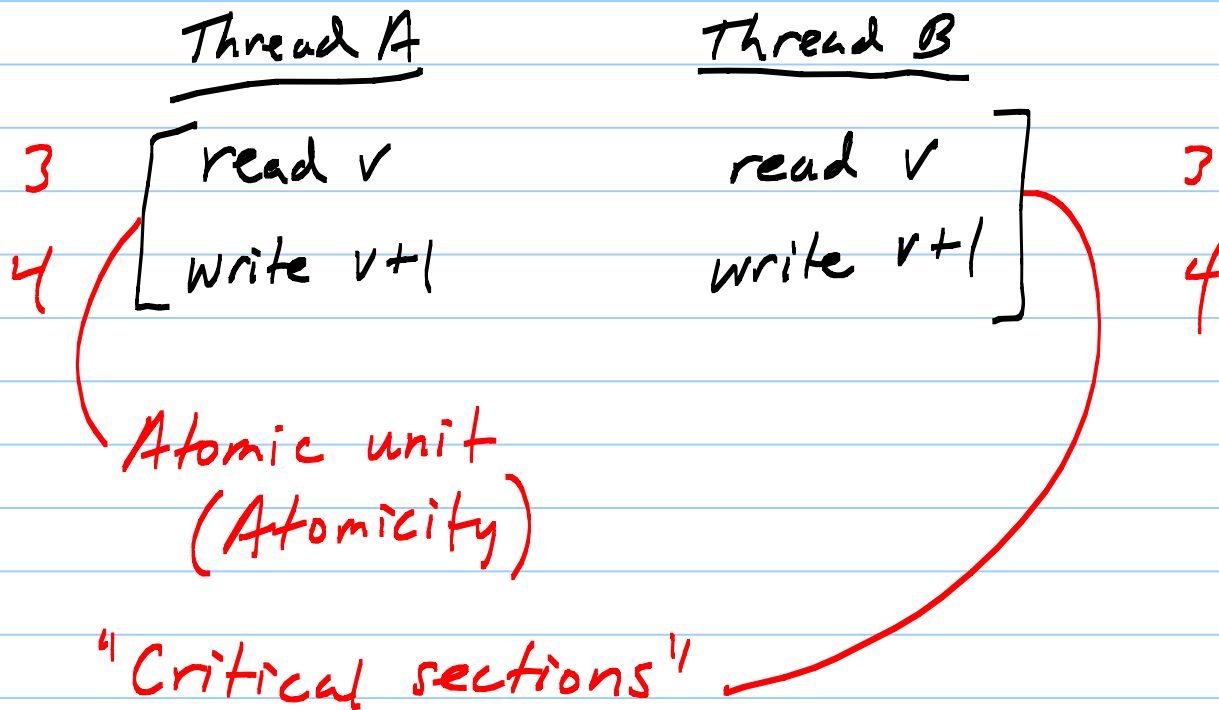 Thread A Thread B
3 read v read v 3
4 write v+1 write v+1 4
Atomic unit
(Atomicity)
"Critical sections"